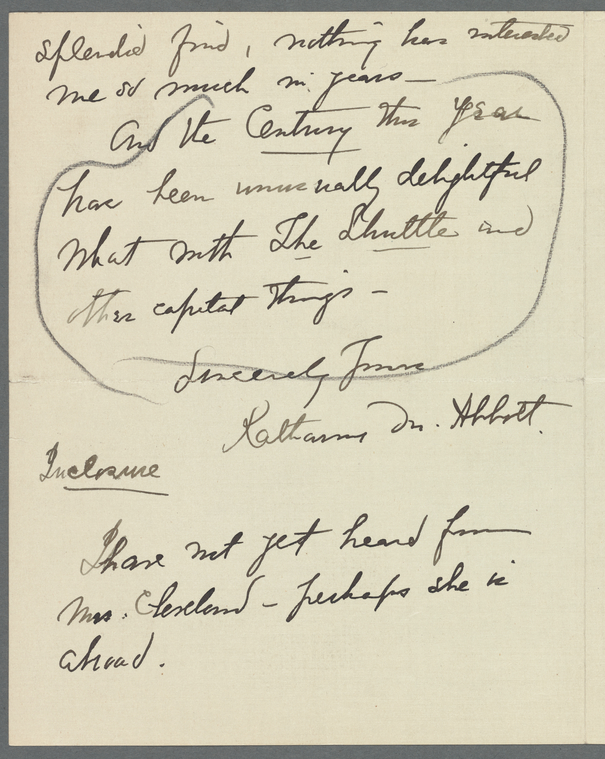 splendid find, nothing has interested
me so much in years —
And the Century this year
has been unusually delightful
what with The Shuttle and
other capital things —
Sincerely Yours
Katharine M. Abbott.
Inclosure
I have not yet heard from
Mrs. Cleveland – perhaps she is
abroad.